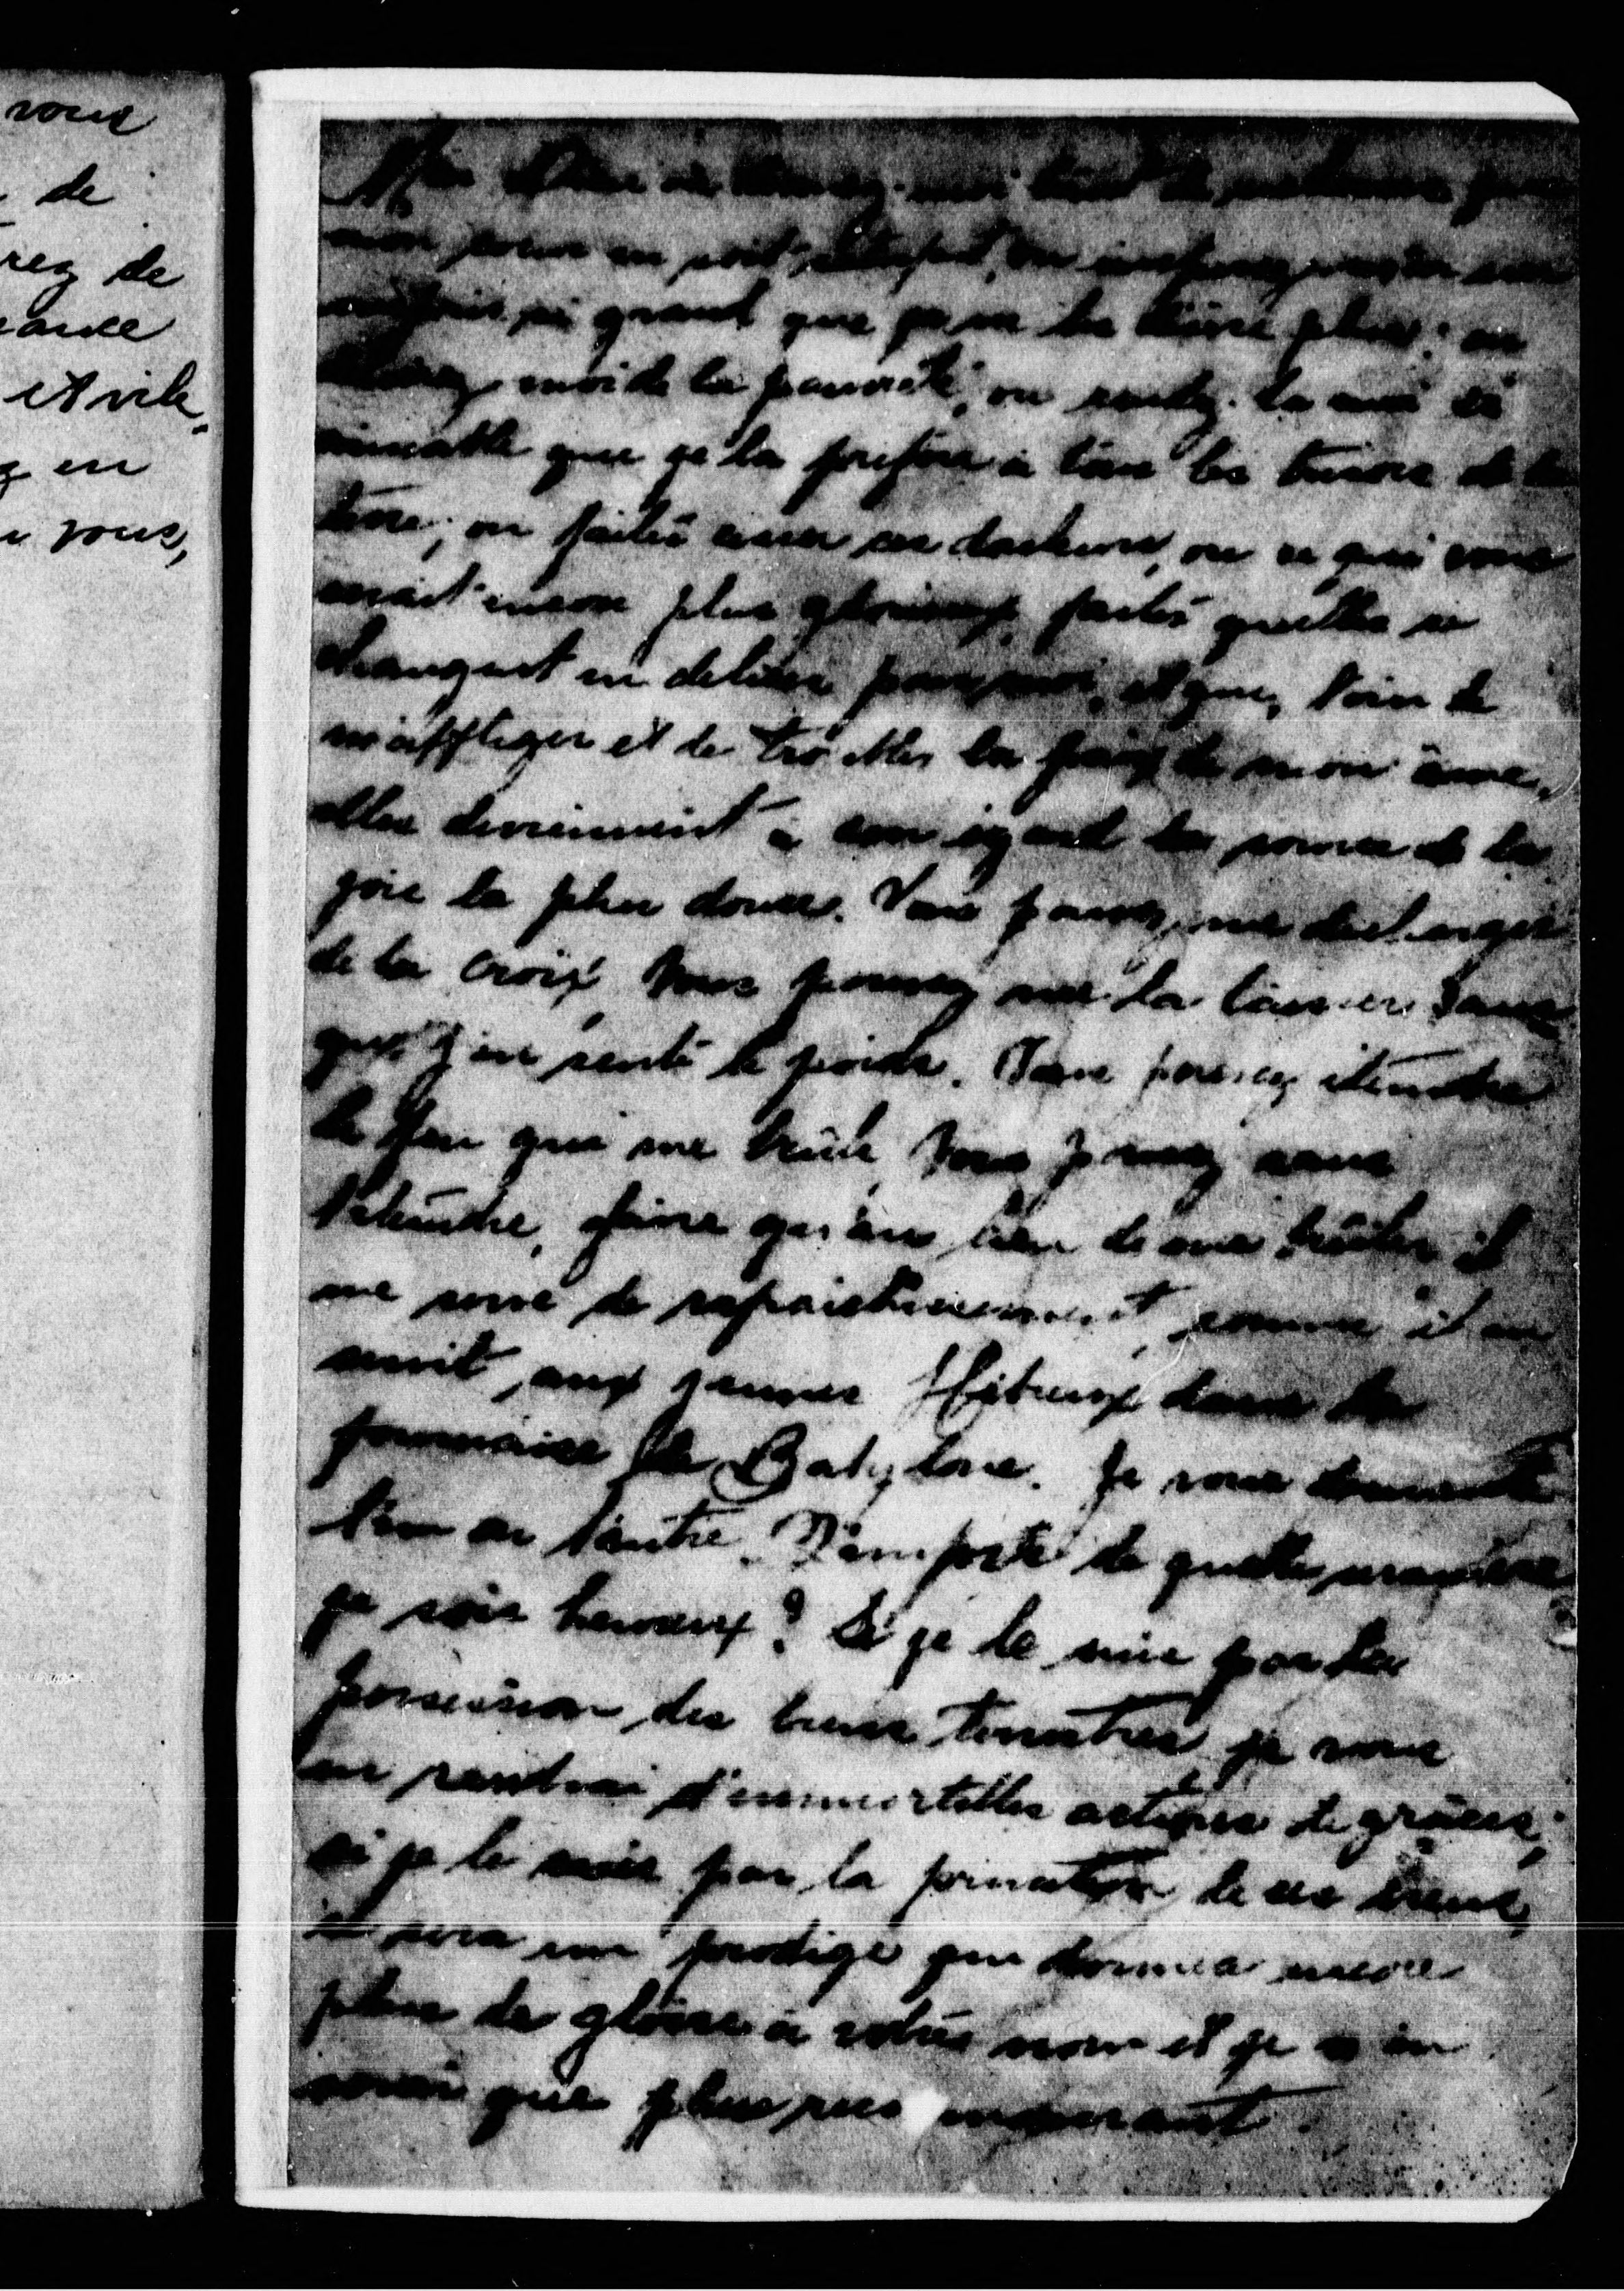 vous
de
rez de
et vile,
z en
vous,
Mon Dieu ou donnez-moi tant de
mon coeur en soit ou inspirez
mépris si grand que je ne les désire plus : ou
délivrez moi de la pauvreté, ou rendez-la moi si
aimable que je la préfère à tous les trésors de la
terre; ou faites cesser ces douleurs, ou ce qui vous
serait encore plus glorieux, faites quelles se
changent en delices pour moi, et que, loin de
m'affliger et de troubler la paix de mon âme,
elles deviennent à son égard la source de la
joie la plus douce. Vous pouvez me décharger
de la croix, vous pouvez me la laisser sans
que j'en sente le poids. Vous pouvez éteindre
le feu qui me brûle, vous pouvez sans
l'éteindre, faire qu'au lieu de me brûler, il
me serve de rafraichissement, comme il en
servit, aux jeunes Hébreux dans la
fournaise de Babylone. Je vous demande
l'un ou l'autre. N'importe de quelle manière
je sois heureux? Si je le suis par la
possession des biens terrestres, je vous
en rendrai d'immortelles actions de grâces;
si je le suis par la privation de ces biens,
ce sera un prodige qui donnera encore
plus de gloire à votre nom et je n'en
serai que plus reconnaissant.